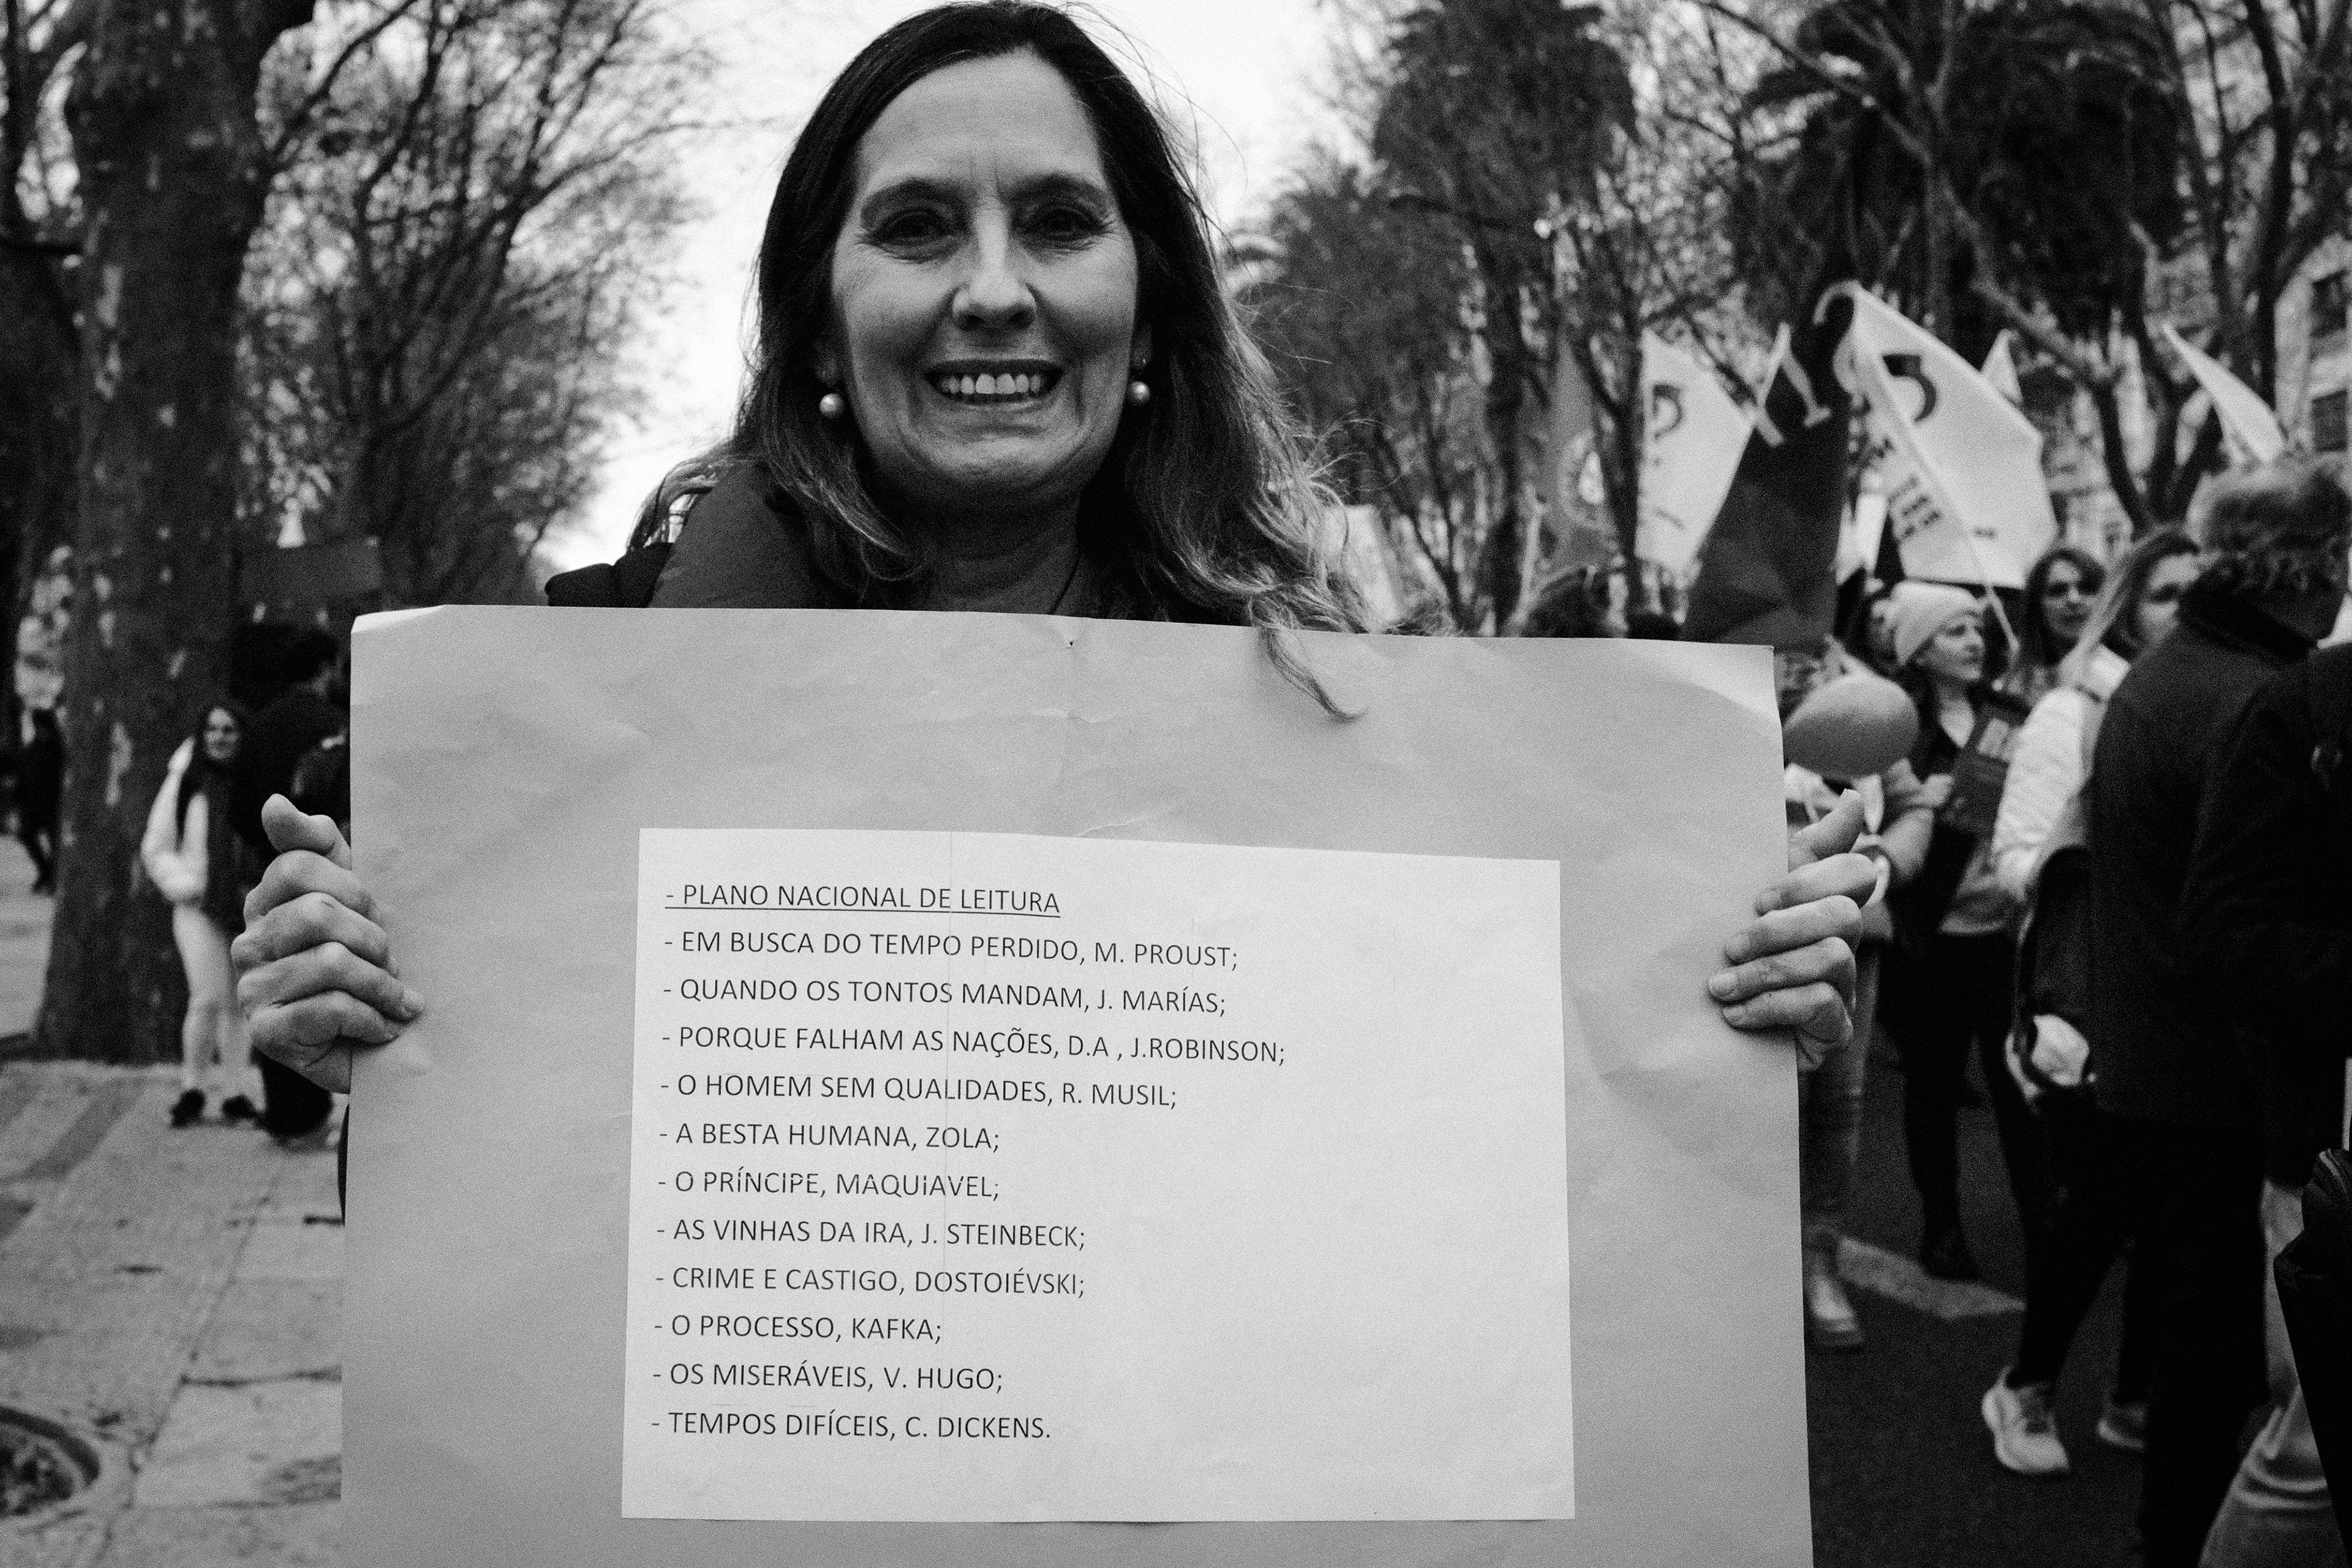 - PLANO NACIONAL DE LEITURA
- EM BUSCA DO TEMPO PERDIDO, M. PROUST;
- QUANDO OS TONTOS MANDAM, J. MARÍAS;
- PORQUE FALHAM AS NAÇÕES, D.A , J.ROBINSON;
- O HOMEM SEM QUALIDADES, R. MUSIL;
- A BESTA HUMANA, ZOLA;
- O PRíNCIPE, MAQUiAVEL;
- AS VINHAS DA IRA, J. STEINBECK;
- CRIME E CASTIGO, DOSTOIÉVSKI;
- O PROCESSO, KAFKA;
- OS MISERÁVEIS, V. HUGO;
- TEMPOS DIFÍCEIS, C. DICKENS.